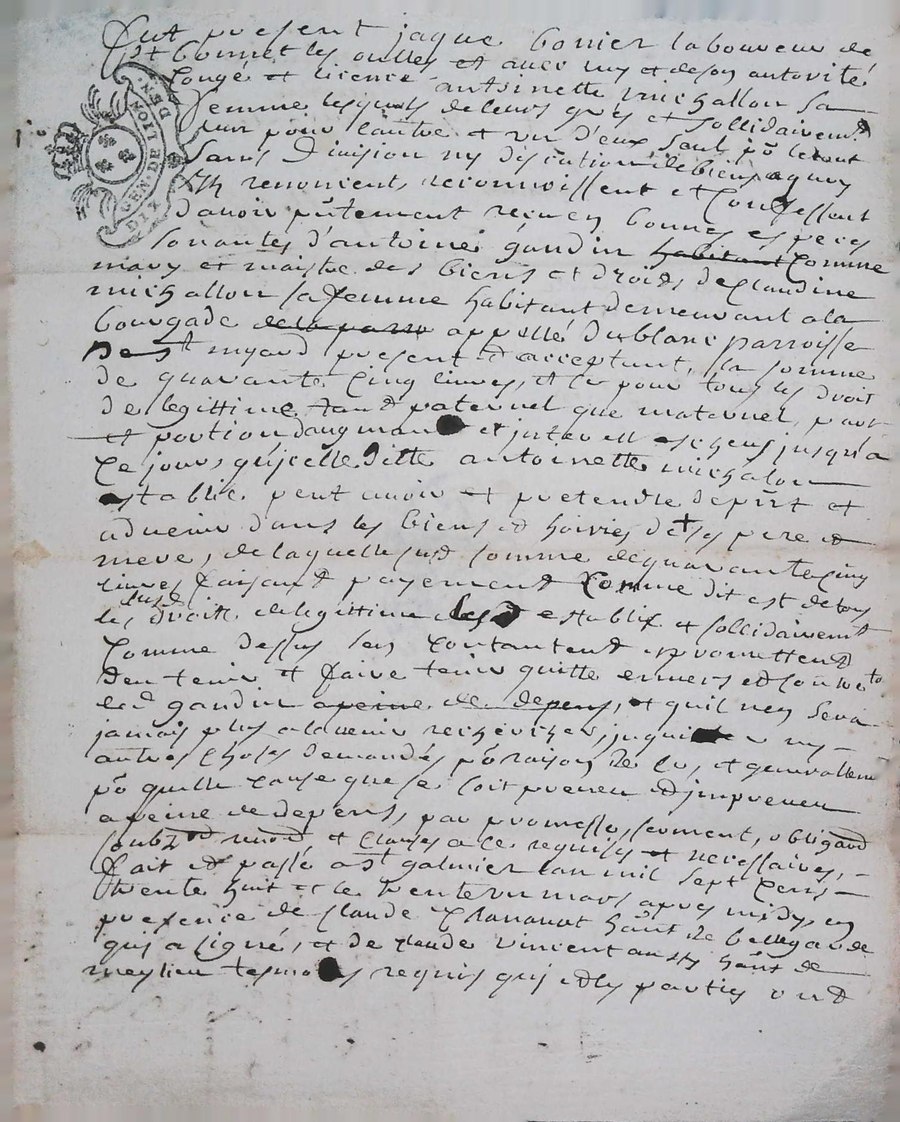 GEN. DE LYON.
DIX DEN.
fut present jaque bonier laboureur de
St bonnet les oulles et avec luy et de son autorité
congé et licence antoinette michallon sa
femme lesquels de leurs grés et sollidairement
l'un pour lautre et un d'eux seul po le tout
sans division ny discution de biens a quoy
ils renoncent, reconnoissent et confessent
d'avoir pntement receu en bonnes especes
sonantes d'antoine gaudin habitant comme
mary et maistre des biens et droits de claudine
michallon sa femme habitant demeurant a la
bourgade de la parro appellé du blanc parroisse
de St myard present et acceptant, la somme
de quarante cinq livres, et ce pour tous les droit
de legittime tant paternel que maternel, part
et portion daugman et interest escheus jusqu'a
ce jours, qu'icelle ditte antoinette michalon
establie peut avoir et pretendre de pnt et
advenir dans les biens et hoiries de ses pere et
mere, de laquelle susd somme de quarante cinq
livres faisant payement comme dit est de tous
les susd droits de legittime lesd establis et sollidairemt
comme dessus sen contantent et promettent
den tenir et faire tenir quitte envers et contre to
led gaudin a peine de depens, et quil ny sera
jamais plus a ladvenir recherché, inquieter ny
autres choses demandés po raison de ce, et generallem
po quelle cause que se soit preveu et impreveu
a peine de depens, par promesse, serment, obligaon
soubz on renon et clauses a ce requises et necessaires,
fait et passé a St galmier lan mil sept cens
trente huit et le trente un mars apres midy, en
presence de claude hant de bellegarde
qui a signé, et de claude vincent aussy hant de
meylieu tesmoins requis qui et les parties ont